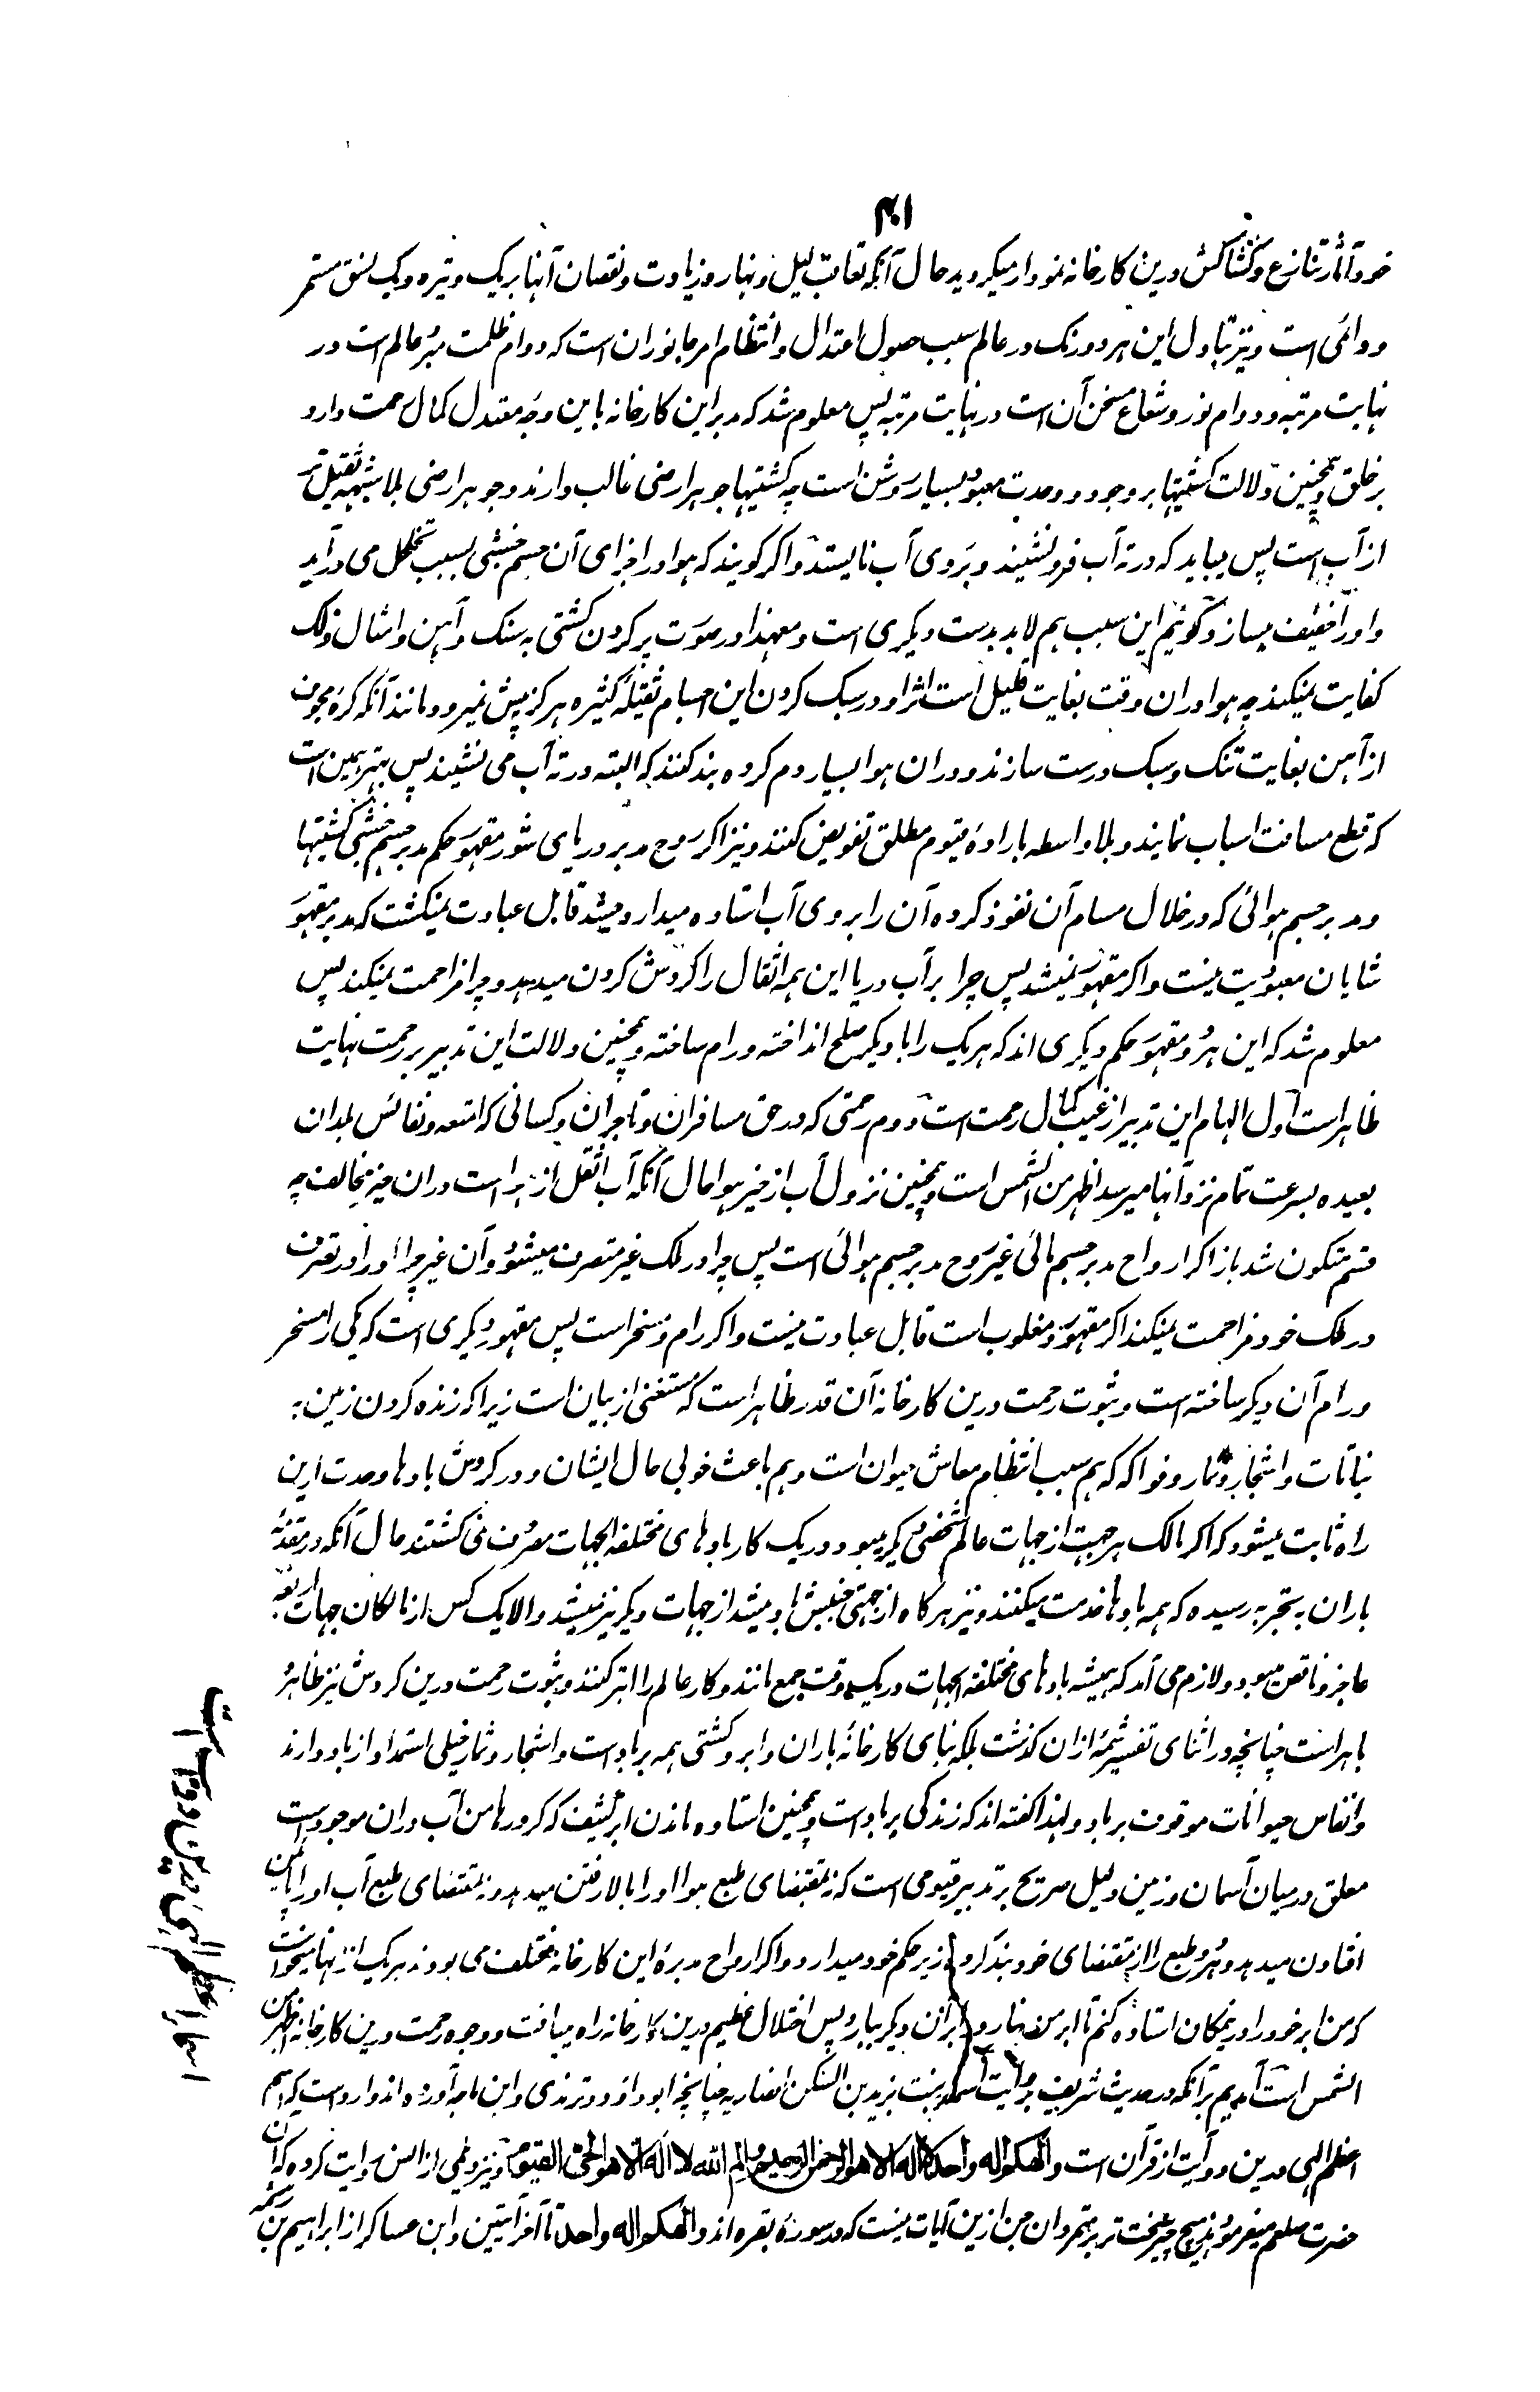 ۴۰۱
خود و آثار تنازع و کشاکش درین کارخانه نمودار میکردید حال آنکه تعاقب لیل و نهار و زیادت و نقصان آنها بریک وتیره و یک نسق مستمر
و دائمی است و نیز تبادل این هر دو رنک در عالم سبب حصول اعتدال و انتظام امر جانوران است که دوام ظلمت مبرّد عالم است در
نهایت مرتبه و دوام نور و شعاع مسخن آن است در نهایت مرتبه پس معلوم شد که مدبر این کارخانه باین وجه معتدل کمال رحمت دارد
بر خلق و همچنین دلالت کشتیها بر وجود و وحدت معبود بسیار روشن است چه کشتیها جوهر ارضی غالب دارند و جوهر ارضی بلا شبهه ثقیل تر
از آب است پس میباید که در ته آب فرو نشیند و بر روی آب نایستد و اکر کویند که هوا در اجزای آن جسم خشبی بسبب تخلخل می درآید
و او را خفیف میسازد کوئیم این سبب هم لابد بدست دیکری است و معهذا در صورت پر کردن کشتی به سنک و آهن و امثال ذلک
کفایت نمیکند چه هوا دران وقت بغایت قلیل است اثر او در سبک کردن این اجسام ثقیله کثیره هرکز پیش نمیرود مانند آنکه کره مجوف
از آهن بغایت تنک و سبک درست سازند و دران هوا بسیار دم کرده بند کنند که البته در ته آب می نشیند پس بهتر همین است
که قطع مسافت اسباب نمایند و بلا واسطه باراده قیوم مطلق تفویض کنند و نیز اکر روح مدبر دریای شور مقهور حکم مدبر جسم خشبی کشتیها
و مدبر جسم هوائی که در خلال مسام آن نفوذ کرده آن را بر روی آب استاده میدارد میشد قابل عبادت نمیکشت که مدبر مقهور
شایان معبودیت نیست و اکر مقهور نمیشد پس چرا بر آب دریا این همه اثقال را کردش کردن میدهد و چرا مزاحمت نمیکند پس
معلوم شد که این هر دو مقهور حکم دیکری اند که هر یک را با دیکر صلح انداخته و رام ساخته و همچنین دلالت این تدبیر بر رحمت نهایت
ظاهر است اول الهام این تدبیر از غیب کمال رحمت است دوم رحمتی که در حق مسافران و تاجران و کسانی که امتعه و نفائس بلدان
بعیده بسرعت تمام نزد آنها میرسد اظهر من الشمس است و همچنین نزول آب از حیز هوا حال آنکه آب اثقل از هوا است دران حیز مخالف چه
قسم متکون شد باز اکر ارواح مدبر جسم مائی غیر روح مدبر جسم هوائی است پس چرا در ملک غیر متصرف میشود و آن غیر چرا او را در تصرف
در ملک خود مزاحمت نمیکند اکر مقهور و مغلوب است قابل عبادت نیست و اکر رام و مسخر است پس مقهور دیکری است که یکی را مسخر
و رام آن دیکر ساخته است و ثبوت رحمت درین کارخانه آن قدر ظاهر است که مستغنی از بیان است زیرا که زنده کردن زمین به
نباتات و اشجار و ثمار و فواکه که هم سبب انتظام معاش حیوان است و هم باعث خوبی حال ایشان و در کردش بادها وحدت ازین
راه ثابت میشود که اکر مالک هر جهت از جهات عالم شخصی دیکر میبود در یک کار بادهای مختلفة الجهات مصرف نمی کشتند حال آنکه در مقدمه
باران به تجربه رسیده که همه بادها خدمت میکنند و نیز هرکاه از جهتی جنبش باد میشد از جهات دیکر نیز میشد والا یک کس از مالکان جهات اربعه
عاجز و ناقص میبود و لازم می آمد که همیشه بادهای مختلفة الجهات در یک وقت جمع مانند و کار عالم را ابتر کنند و ثبوت رحمت درین کردش نیز ظاهر و
باهر است چنانچه در اثنای تفسیر شمه ازان کذشت بلکه بنای کارخانه باران و ابر و کشتی همه بر باد است و اشجار و ثمار خیلی استمداد از باد دارند
و انفاس حیوانات موقوف بر باد و لهذا کفته اند که زندکی بر باد است و همچنین استاده ماندن ابر کثیف که کرورها من آب دران موجود است
معلق در میان آسمان و زمین دلیل صریح بر تدبیر قیومی است که نه بمقتضای طبع هوا او را بالا رفتن میدهد و نه بمقتضای طبع آب او را پایین
افتادن میدهد و هر دو طبع را از مقتضای خود بند کرده زیر حکم خود میدارد و اکر ارواح مدبره این کارخانه مختلف می بودند هر یک از آنها میخواست
که من ابر خود را در یمکان استاده کنم تا ابر من ببارد و ابر آن دیکر نبارد پس اختلال عظیم درین کارخانه راه میافت و وجوه رحمت درین کارخانه اظهر من
الشمس است آمدیم بر آنکه در حدیث شریف بروایت اسماء بنت یزید بن السکن انصاریه چنانچه ابو داؤد و ترمذی و ابن ماجه آورده اند وارد است که اسم
اعظم الهی در ین دو آیت از قرآن است والهکم اله واحد لا اله الا هو الرحمن الرحیم و الم الله لا اله الا هو الحی القیوم و نیز دیلمی از انس روایت کرده که آن
حضرت صلعم میفرمودند هیچ چیز سخت تر بر متمردان جن ازین آیات نیست که در سوره بقره اند والهکم اله واحد تا آخر آیتین و ابن عساکر از ابراهیم بن
اسم اعظم الهی درین دو آیت است